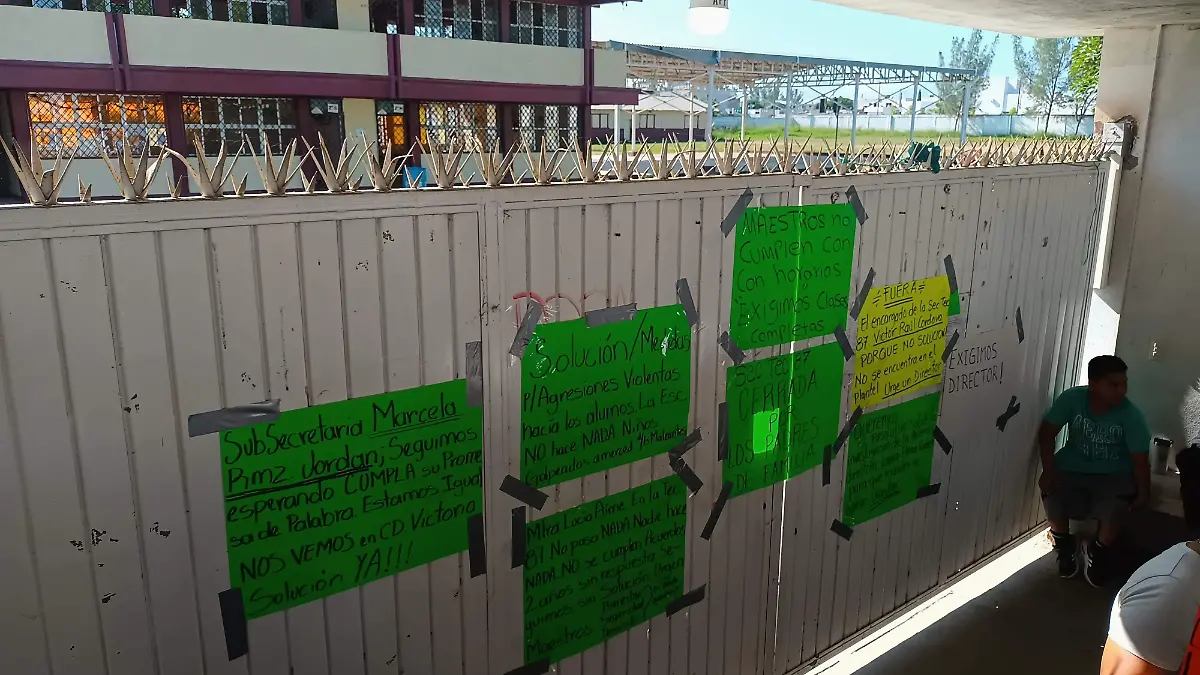 SubSecretaria Marcela
Rmz Jordan, Seguimos
esperando CUMPLA su Prome
sa de Palabra Estamos Igual
NOS VEMOS en CD. Victoria
Solución YA!!!
Solución/Medidas
P/Agresiones Violentas
hacía los alumnos. La Esc.
NO hace NADA Niños
Golpeados a merced
Mtra Lucia Aime En la Tec
87 No pasa NADA Nadie hace
NADA. NO se cumplen Acuerdos
2 años sin respuesta Se-
guimos sin Solución. Urgen
Maestros
MAESTROS no
Cumplen con
con horarios
Exigimos Clases
Completas
SEC TEC 87
CERRADA
LOS PADRES
DE FAMILIA
FUERA
El encargado de la Sec Tec
87 Victor Raúl Cordova
PORQUE NO SOLUCION
No se encuentra en el
Plantel Urge un Director
EXIGIMOS
DIRECTOR!